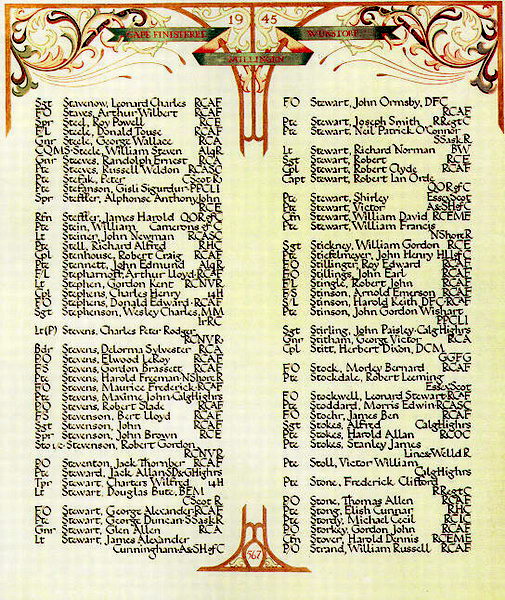 1945
CAPE FINISTERRE
WUNSTORF
Sgt Stavenow, Leonard Charles RCAF
FO Staves, Arthur Wilbert RCAF
Spr Steel, Roy Powell RCE
F/L Steele, Donald Touse RCAF
Gnr Steele, George Wallace RCA
CQMS Steele, William Steven AlgR
Gnr Steeves, Randolph Ernest RCA
Pte Steeves, Russell Weldon RCASC
Pte Stefiuk, Peter CScotR
Pte Stefanson, Gisli Sigurdur PPCLI
Spr Steffler, Alphonse Anthony John
RCE
Rfn Steffler, James Harold QORofC
Pte Stein, William CameronsofC
Lt Steiner, John Newman RCASC
Pte Stell, Richard Alfred RHC
Cpl Stenhouse, Robert Craig RCAF
Pte Stennett, John Edmund AlgR
F/L Stephanoff, Arthur Lloyd RCAF
Lt Stephen, Gordon Kent RCNVR
Cpl Stephens, Charles Henry 14H
FO Stephens, Donald Edward RCAF
Sgt Stephenson, Wesley Charles, MM
IrRC
Lt(P) Stevens, Charles Peter Rodger
RCNVR
Bdr Stevens, Delorma Sylvester RCA
PO Stevens, Elwood LeRoy RCAF
FS Stevens, Gordon Brassett RCAF
Pte Stevens, Harold Freeman NShoreR
FO Stevens, Maurice Frederick RCAF
Pte Stevens, Maxime John CalgHighrs
PO Stevens, Robert Slade RCAF
FS Stevenson, Bert Lloyd RCAF
Sgt Stevenson, John RCAF
Spr Stevenson, John Brown RCE
Sto Stevenson, Robert Gordon
RCNVR
PO Steventon, Jack Thornber RCAF
Pte Steward, Jack Allan SD&GHighrs
Tpr Stewart, Charles Wilfred 14H
Lt Stewart, Douglas Bute, BEM
CScotR
FO Stewart, George Alexander RCAF
Pte Stewart, George Duncan SSaskR
Gnr Stewart, Glen Allen RCA
Lt Stewart, James Alexander
Cunningham A&SHofC
FO Stewart, John Ormsby, DFC
RCAF
Pte Stewart, Joseph Smith RRegtC
Pte Stewart, Neil Patrick O'Connor
SSaskR
Lt Stewart, Richard Norman BW
Sgt Stewart, Robert RCE
Cpl Stewart, Robert Clyde RCAF
Capt Stewart, Robert Ian Orde
QORofC
Pte Stewart, Shirley EssexScot
Pte Stewart, Victor A&SHofC
Cfn Stewart, William David RCEME
Pte Stewart, William Francis
NShoreR
Sgt Stickney, William Gordon RCE
Pte Stiefelmeyer, John Henry HLIofC
FO Stillinger, Roy Edward RCAF
FO Stillings, John Earl RCAF
F/L Stingle, Robert John RCAF
FS Stinson, Arnold Emerson RCAF
S/L Stinson, Harold Keith, DFC RCAF
Pte Stinson, John Gordon Wishart
PPCLI
Sgt Stirling, John Paisley CalgHighrs
Gnr Stitham, George Victor RCA
Cpl Stitt, Herbert Dixon, DCM
GGFG
FO Stock, Morley Bernard RCAF
Pte Stockdale, Robert Leeming
EssexScot
FO Stockwell, Leonard Stewart RCAF
Pte Stoddard, Morris Edwin RCASC
FO Stohr, James Ben RCAF
Sgt Stokes, Alfred CalgHighrs
Pte Stokes, Harold Allan RCOC
Pte Stokes, Stanley James
Linc&WelldR
Pte Stoll, Victor William
CalgHighrs
Pte Stone, Frederick Clifford
RRegtC
PO Stone, Thomas Allen RCAF
Pte Stong, Elish Gunnar RHC
Pte Stordy, Michael Cecil RCIC
PO Storkey, Gordon John RCAF
Cfn Stover, Harold Dennis RCEME
PO Strand, William Russell RCAF
567